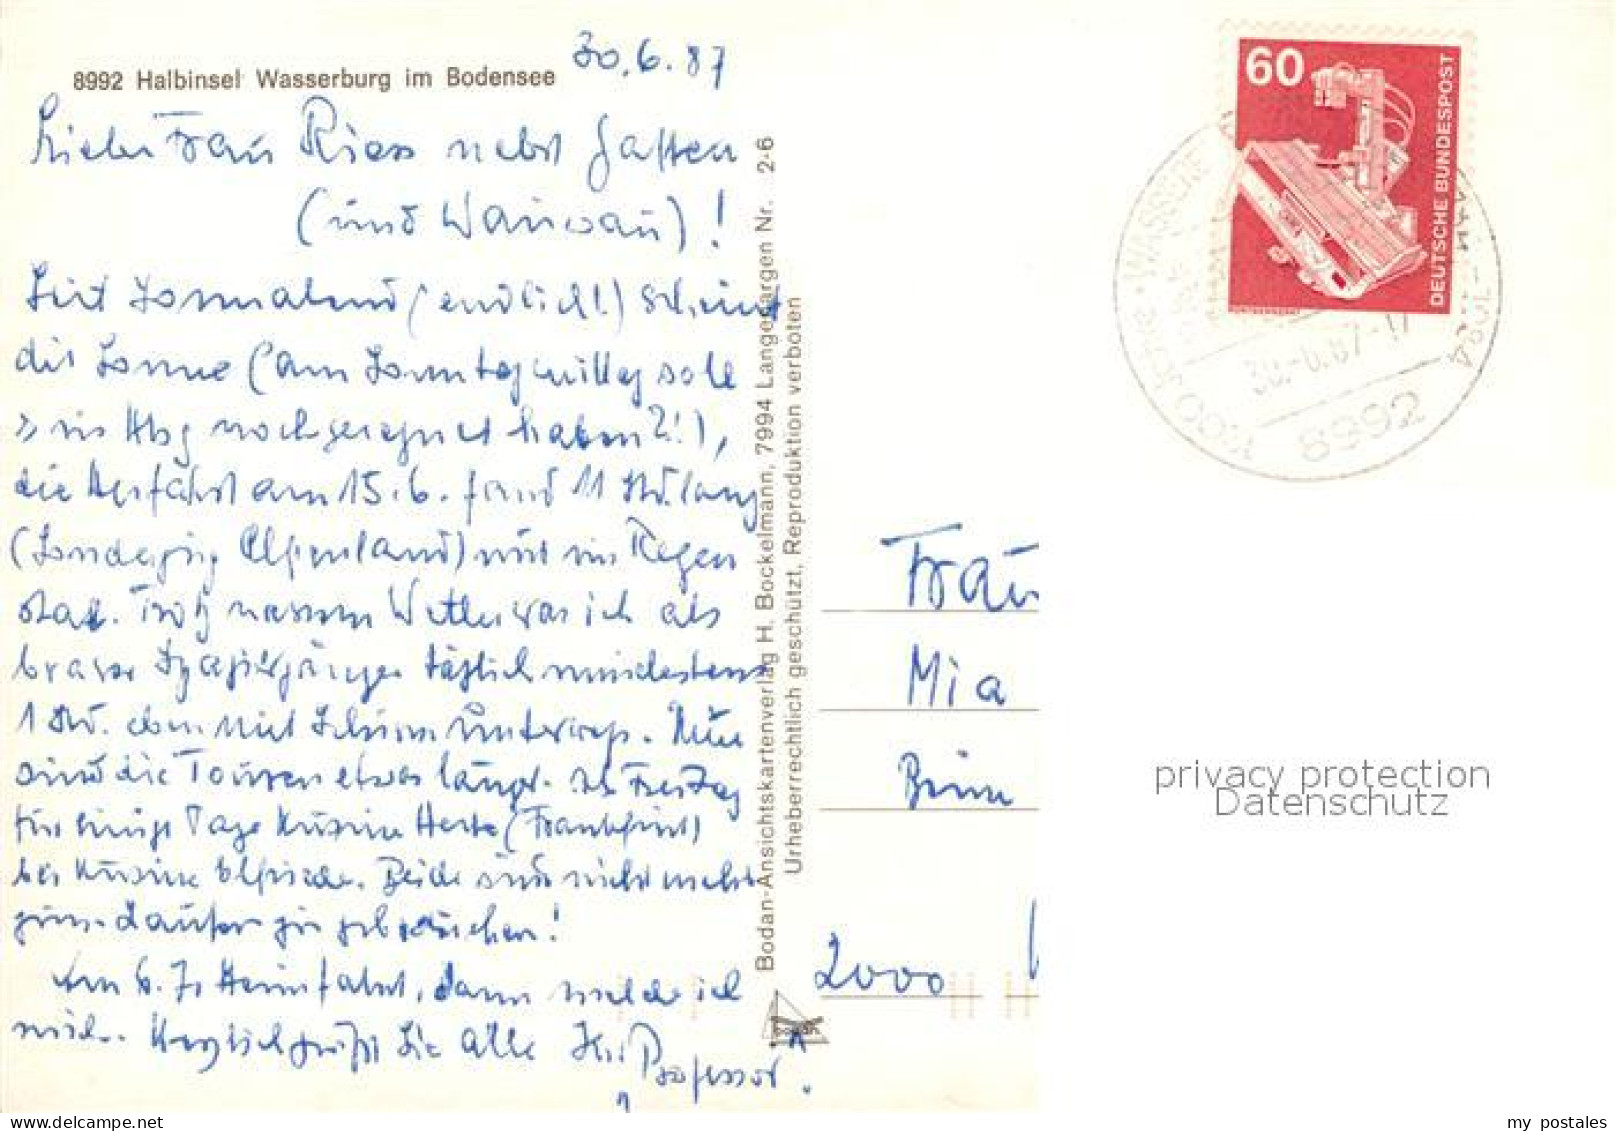 30.6.87
8992 Halbinsel Wasserburg im Bodensee
Liebe Frau Riess nebst Gatten
(und Wauwau)!
Seit Sonnabend (endlich!) scheint
die Sonne (am Sonntagmittag soll
es in Hbg noch geregnet haben?!),
die Herfahrt am 15.6. fand 11 Std. lang
(Sonderzug Alpenland) nur im Regen
statt. Trotz nassem Wetter war ich als
braver Spaziergänger täglich mindestens
1 Std. eben mit Schirm unterwegs. Nun
sind die Touren etwas länger. Ab Freitag
für einige Tage Kusine Herta (Frankfurt)
bei Kusine Elfriede. Beide sind nicht mehr
zum Laufen zu gebrauchen!
Am 6.7. Heimfahrt, dann melde ich
mich. Herzlich grüßt Sie alle Ihr
"Professor".
Bodan-Ansichtskartenverlag H. Bockelmann, 7994 Langenargen Nr. 2-6
Urheberrechtlich geschützt, Reproduktion verboten
bodan
60
DEUTSCHE BUNDESPOST
30.-6.87-17
8992
Frau
Mia
2000
privacy protection
Datenschutz
my postales